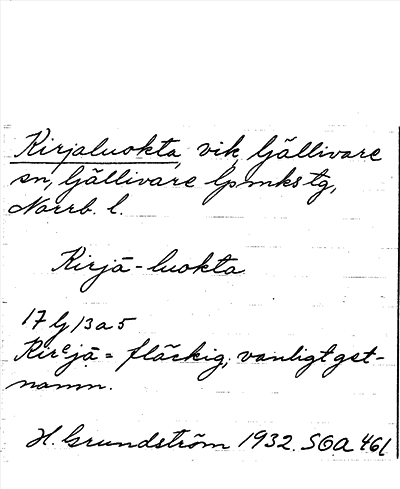 Kirjaluokta, vik, Gällivare
sn, Gällivare lpmkstg,
Norrb. l.
Kirjā-luokta
17 G 13 a 5
Kirᵉjā = fläckig; vanligt gst-
namn.
H. Grundström 1932. SOA 461